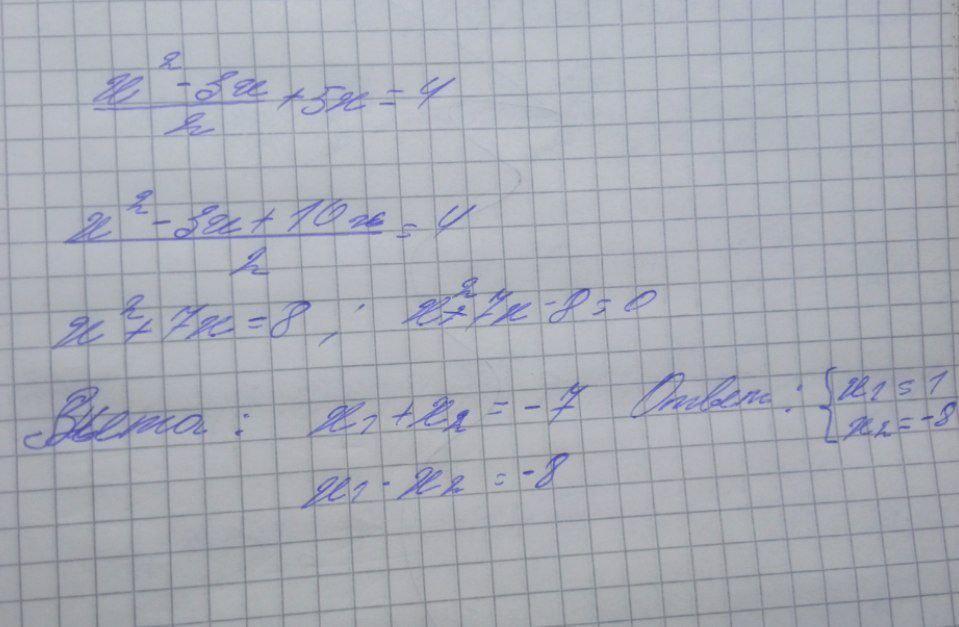 x² - 3x / 2 + 5x = 4
x² - 3x + 10x / 2 = 4
x² + 7x = 8 ; x² + 7x - 8 = 0
Виета : x₁ + x₂ = -7 Ответ : { x₁ = 1
x₂ = -8
x₁ · x₂ = -8